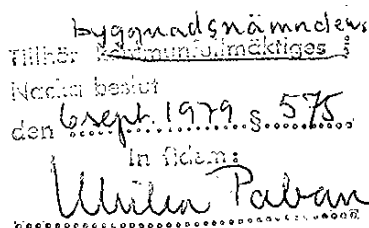 byggnadsnämndens
Tillhör kommunfullmäktiges
Nacka beslut
den 6 sept. 1979 § 575
In fidem:
Ulrika Paban